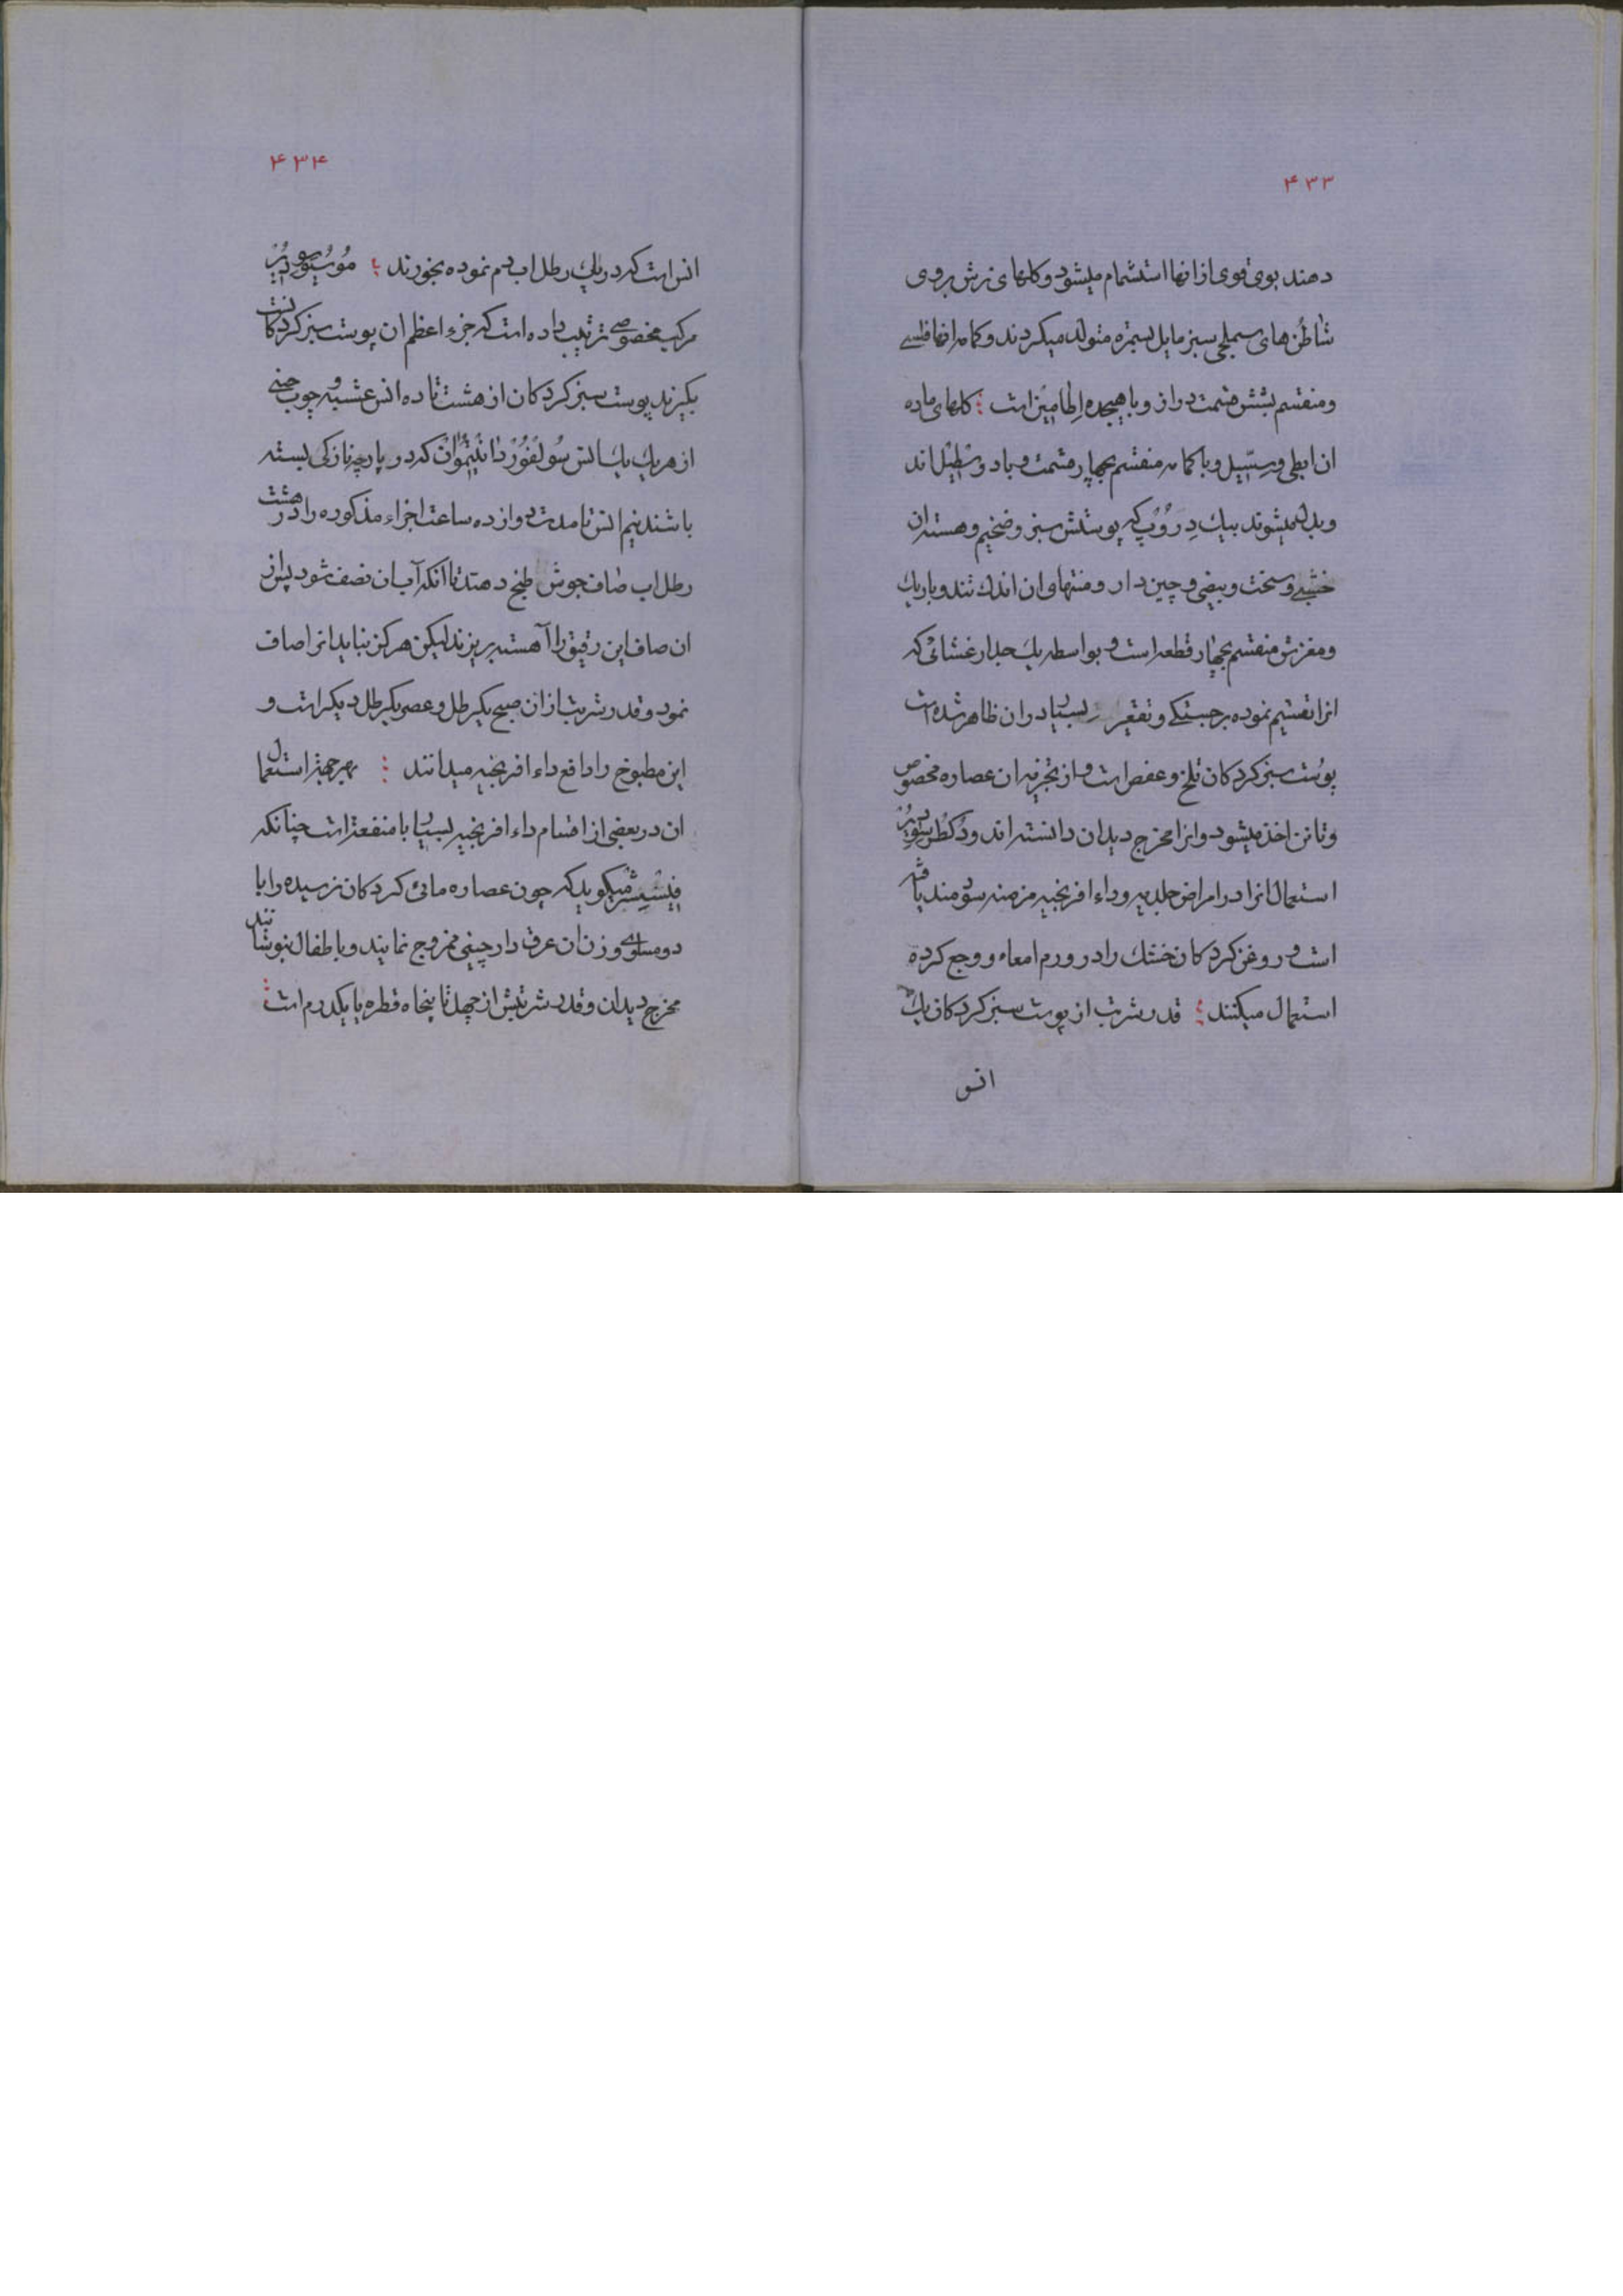 ۴۳۳
دهند بوی قوی از انها استشمام میشود و کلهای نرش بروی
شاطن های سمبلجی سبز مایل بسمره متولد میکردند و کاسه انها فلسی
و منقسم بشش قسمت دراز و با هیجده اطامین است کلهای ماده
ان ابطی و سسیل و با کاسه منقسم بچهار قسمت و با دو سطیل اند
و بدل میشوند بیك دروپ که پوستش سبز و ضخیم و هسته ان
خشبی و سخت و بیضی و چین دار و منتهای ان اندك تند و باریك
و مغزش منقسم بچهار قطعه است و بواسطه یك جدار غشائی که
انرا تقسیم نموده برجستکی و تقعیر بسیار در ان ظاهر شده است
پوست سبز کردکان تلخ و عفص است و از تجزیه ان عصاره مخصوص
و تانن اخذ میشود و انرا مخرج دیدان دانسته اند و دکطر
استعمال انرا در امراض جلدیه و داء افرنجیه مزمنه سودمند یافته
است و روغن کردکان خشك را در ورم امعاء و وجع کرده
استعمال میکنند قدر شربت از پوست سبز کردکان یك
انس
۴۳۴
انس است که در یك رطل اب دم نموده بخورند موسیو
مرکب مخصوصی ترتیب داده است که جزء اعظم ان پوست سبز کردکانست
بکیرند پوست سبز کردکان از هشت تا ده انس عشبه و چوب چینی
از هر یك یك انس سولفور دانتیموان که در پارچه نازکی بسته
باشند نیم انس تا مدت دوازده ساعت اجزاء مذکوره را در هشت
رطل اب صاف جوش طبخ دهند تا انکه آب ان نصف شود پس از
ان صاف این رقیق را آهسته بریزند لیکن هرکز نباید انرا صاف
نمود و قدر شربت از ان صبح یکرطل و عصر یکرطل دیکر است و
این مطبوخ را دافع داء افرنجیه میدانند بهر جهة استعمال
ان در بعضی از اقسام داء افرنجیه بسیار با منفعت است چنانکه
فیشیشر میکوید که چون عصاره مائی کردکان نرسیده را با
دو مساوی وزن ان عرق دارچینی ممزوج نمایند و باطفال بنوشانند
مخرج دیدان و قدر شربتش از چهل تا پنجاه قطره یا یکدرم است